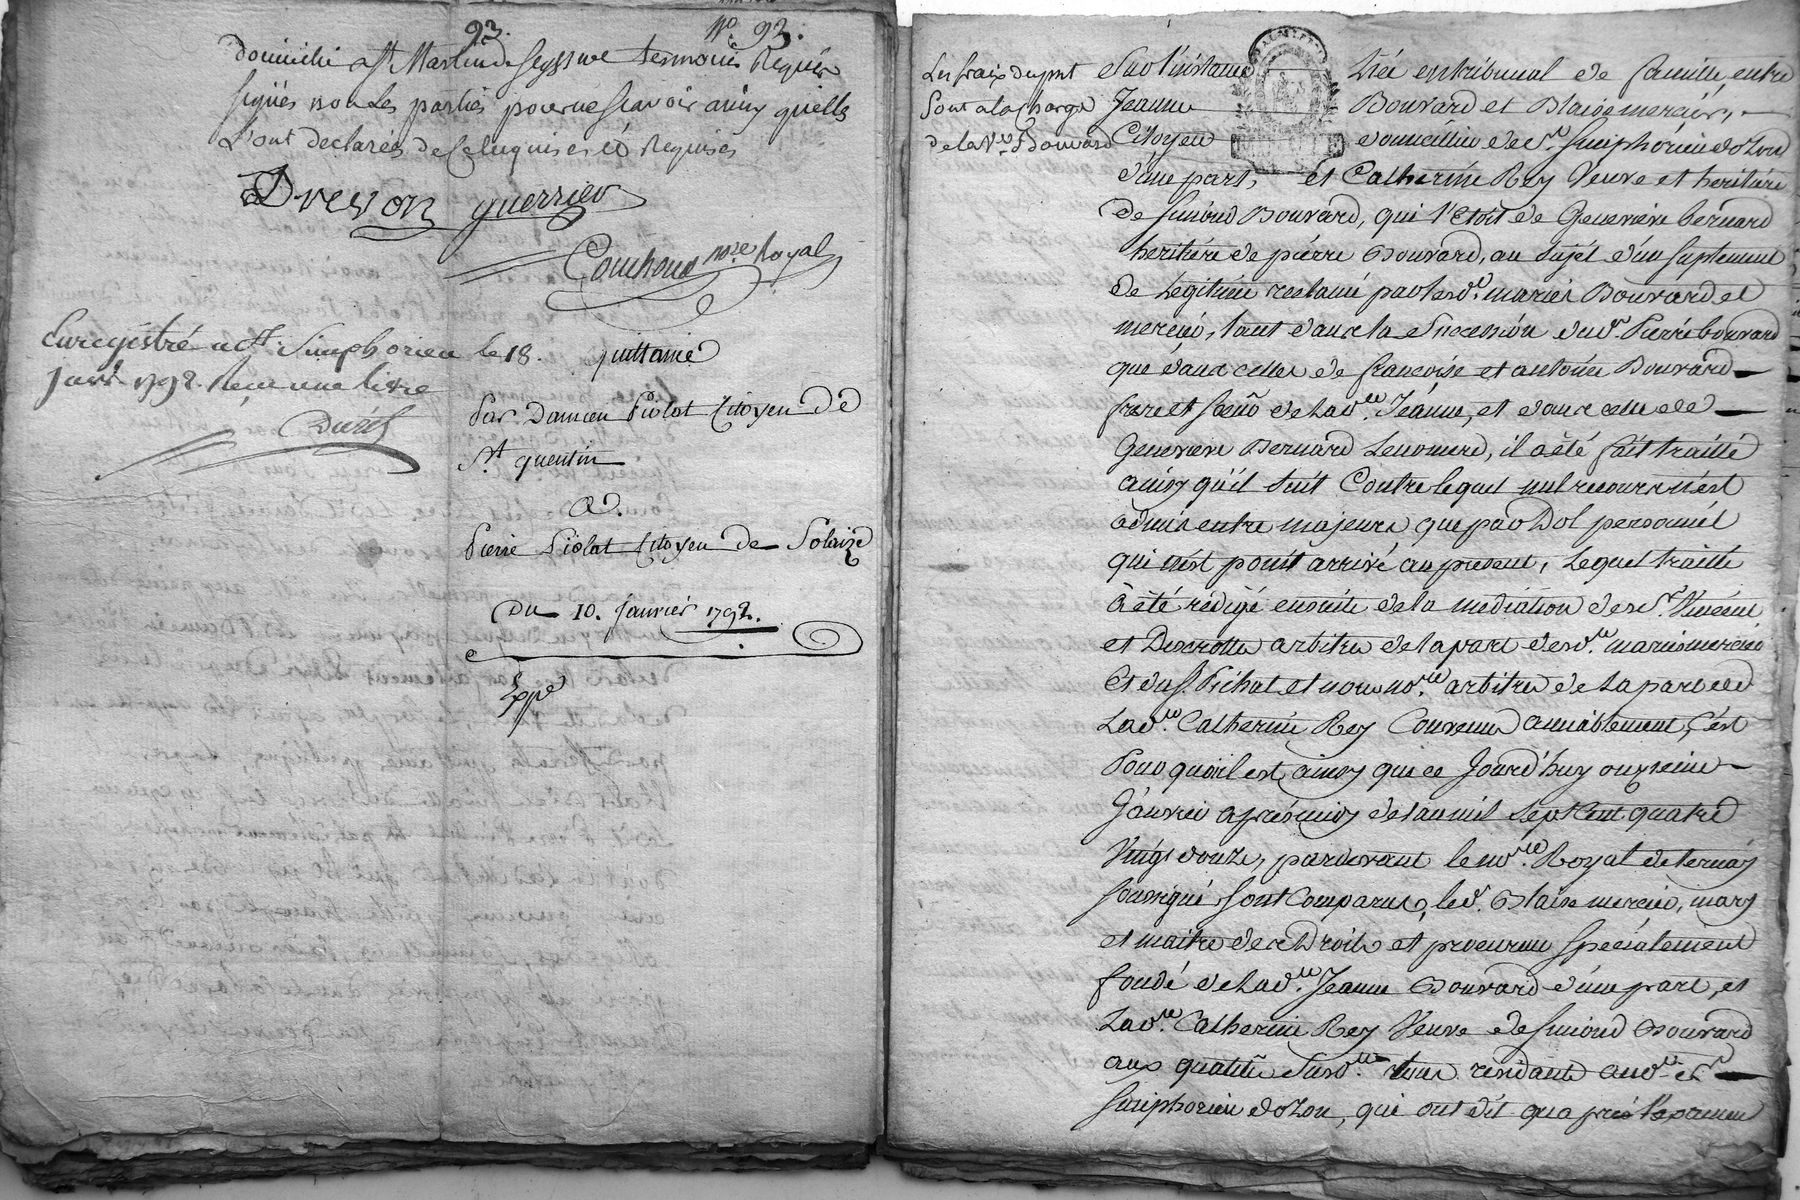 93.
N.º 93.
domicilié a St Martin de Seyssuel temoins Requis
signés non Les parties pour ne sçavoir ainsy qu'elles
L'ont declarés de Ce enquises et Requises
Drevon guerrier
nore Royal
Enregistré a St Simphorien le 18.
janvr 1792. Reçu une livre
quittance
Par Damien Piolat Citoyen de
St quentin
a.
Pierre Piolat Citoyen de Solaize
Du 10. janvier 1792.
Exppé
Les fraix du pnt
sont a la charge
de la Ve Bouvard
Sur l'instance liée en tribunal de famille entre
Jeanne Bouvard et Blaise mercier,
Citoyen domicilliés de St Simphorien dozon
d'une part, et Catherine Rey Veuve et heritière
de Simond Bouvard, qui l'étoit de Genevieve bernard
heritière de pierre Bouvard, au sujet d'un suplement
de Légitime reclamé par lesd. mariés Bouvard et
mercier, tant dans la Succession dud. Pierre bouvard
que dans celles de françoise et antoine Bouvard
frere et sœur de Lad. Jeanne, et dans celle de
Genevieve Bernard Leur mere, il a été fait traitté
ainsy qu'il suit Contre lequel nul recours n'est
admis entre majeurs que par Dol personnel
qui n'est point arrivé au présent, Lequel traitté
a été rédigé ensuite de la médiation de srs Vincent
et Descrotte arbitres de la part desd. mariés mercier
Et du S. Pichat et nous nore arbitres de La part de
Lad. Catherine Rey Convenus amiablement, c'est
Pourquoi il est ainsy que ce Jourd'huy onzieme
Janvier après midy de l'an mil sept Cent quatre
Vingt douze, pardevant le nore Royal de ternay
soussigné sont Comparus, led. Blaise mercier, mary
et maitre des Droits et procureur spécialement
fondé de Lad. Jeanne Bouvard d'une part, et
Lad. Catherine Rey Veuve de Simond Bouvard
aux qualités susd. tous residants aud. St
Simphorien dozon, qui ont dit qu'après l'examen